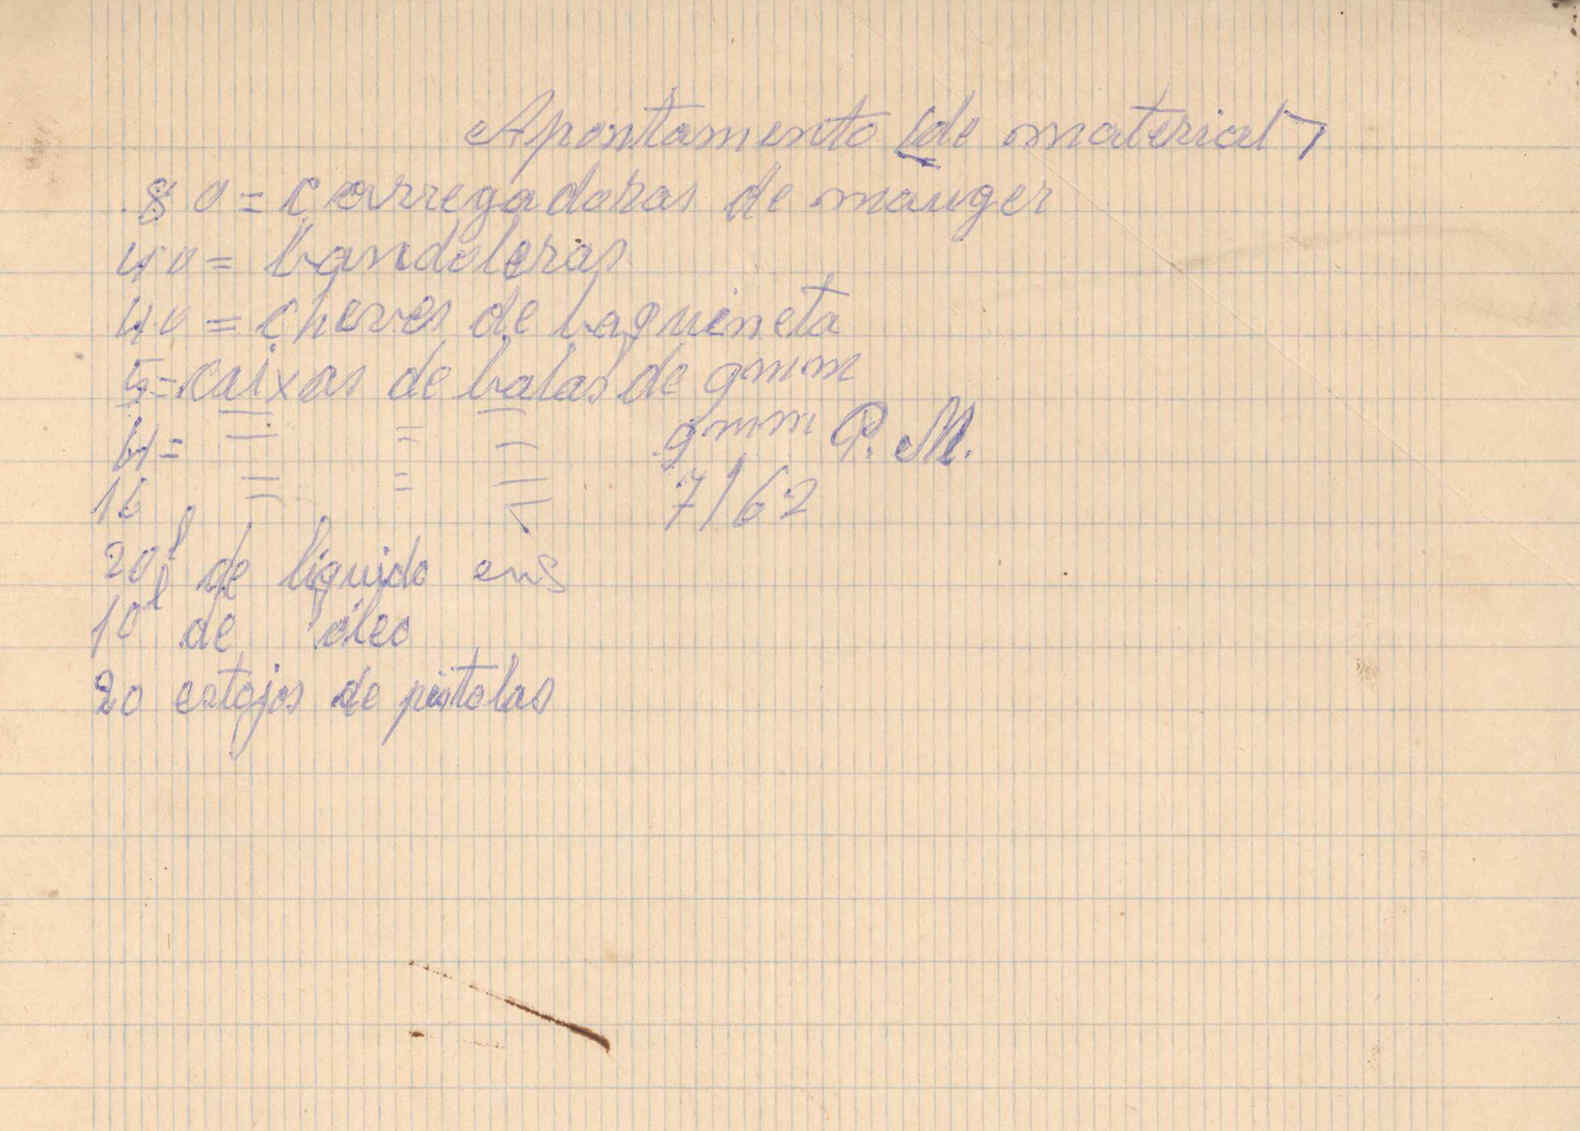 Apontamento de material
80 = carregadoras de mauger
40 = bandoleras
40 = chaves de baguineta
5 = caixas de balas de 9mm
4 = = = = 9mm P. M.
16 = = = 7/62
20l de liquido
10l de óleo
20 estojos de pistolas